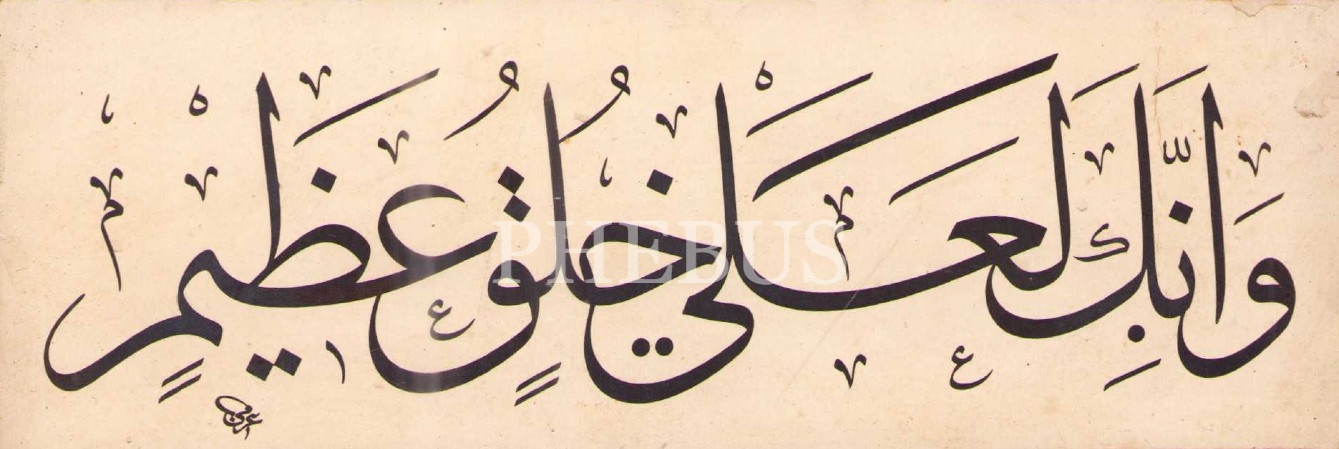 وَاِنَّكَ لَعَلٰي خُلُقٍ عَظ۪يمٍ
PHEBUS